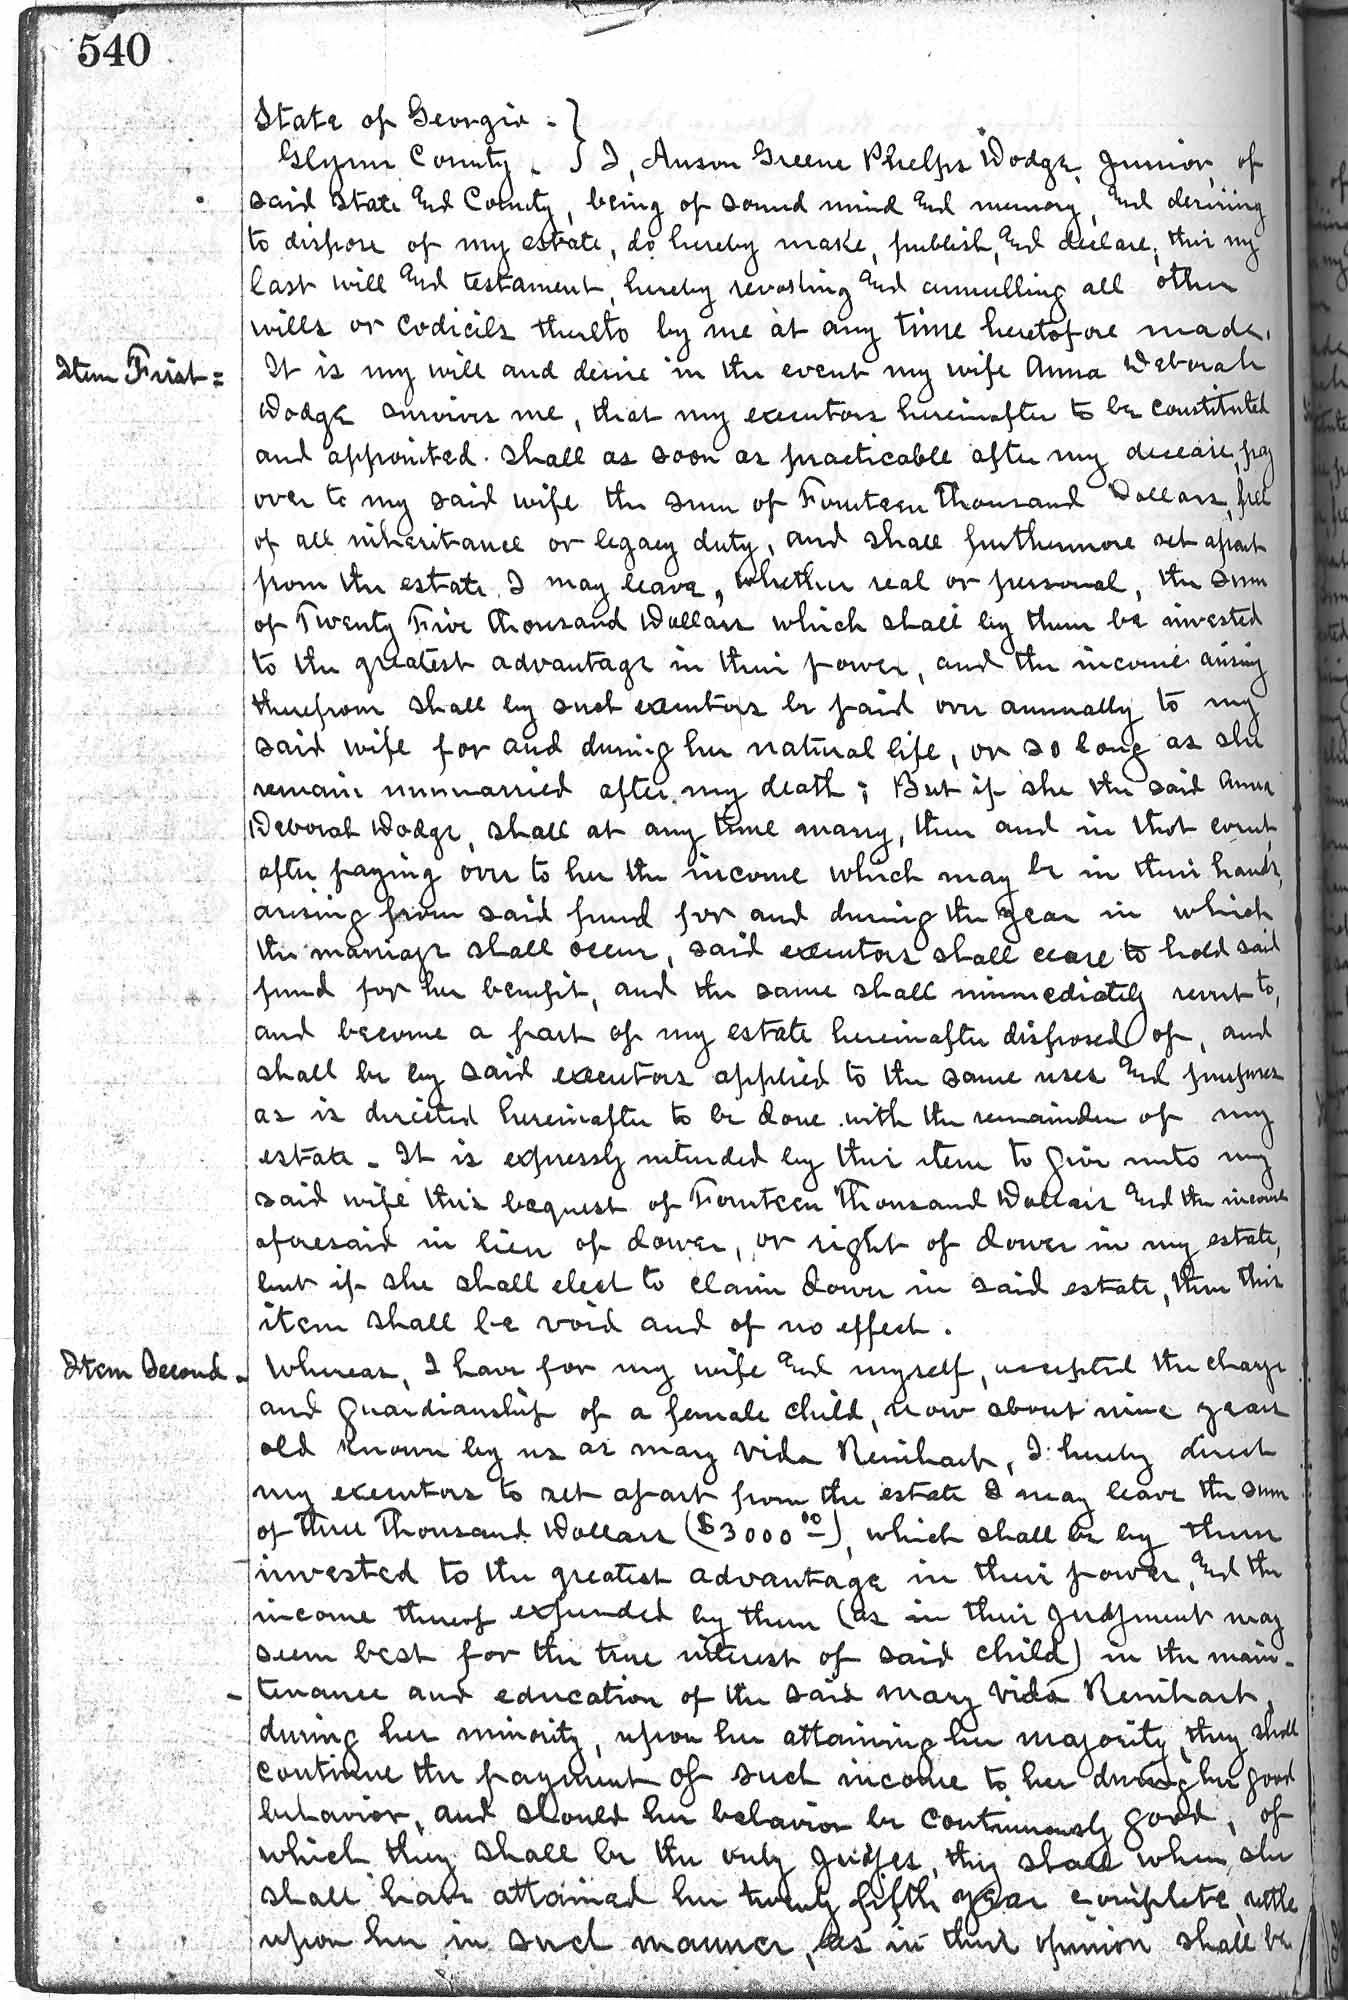 540
State of Georgia . }
Glynn County . } I, Anson Greene Phelps Dodge, Junior, of
said State and County, being of sound mind and memory, and desiring
to dispose of my estate, do hereby make, publish, and declare, this my
last will and testament, hereby revoking and annulling all other
wills or codicils thereto by me at any time heretofore made.
Item First = It is my will and desire in the event my wife Anna Deborah
Dodge survives me, that my executors hereinafter to be constituted
and appointed shall as soon as practicable after my decease, pay
over to my said wife the sum of Fourteen Thousand Dollars, free
of all inheritance or legacy duty, and shall furthermore set apart
from the estate I may leave, whether real or personal, the sum
of Twenty Five Thousand Dollars which shall by them be invested
to the greatest advantage in their power, and the income arising
therefrom shall by such executors be paid over annually to my
said wife for and during her natural life, or so long as she
remain unmarried after my death; But if she the said Anna
Deborah Dodge, shall at any time marry, then and in that event,
after paying over to her the income which may be in their hands,
arising from said fund for and during the year in which
the marriage shall occur, said executors shall cease to hold said
fund for her benefit, and the same shall immediately revert to,
and become a part of my estate hereinafter disposed of, and
shall be by said executors applied to the same uses and purposes
as is directed hereinafter to be done with the remainder of my
estate - It is expressly intended by this item to give unto my
said wife this bequest of Fourteen Thousand Dollars and the income
aforesaid in lieu of dower, or right of dower in my estate,
but if she shall elect to claim dower in said estate, then this
item shall be void and of no effect.
Item Second - Whereas, I have for my wife and myself, accepted the charge
and guardianship of a female child, now about nine years
old known by us as Mary Vida Reinhart, I hereby direct
my executors to set apart from the estate I may leave the sum
of three Thousand Dollars ($3000.00), which shall be by them
invested to the greatest advantage in their power, and the
income thereof expended by them (as in their judgment may
seem best for the true interest of said child) in the main-
tenance and education of the said Mary Vida Reinhart,
during her minority, upon her attaining her majority, they shall
continue the payment of such income to her during her good
behavior, and should her behavior be continuously good, of
which they shall be the only judges, they shall when she
shall have attained her twenty fifth year complete, settle
upon her in such manner, as in their opinion shall be